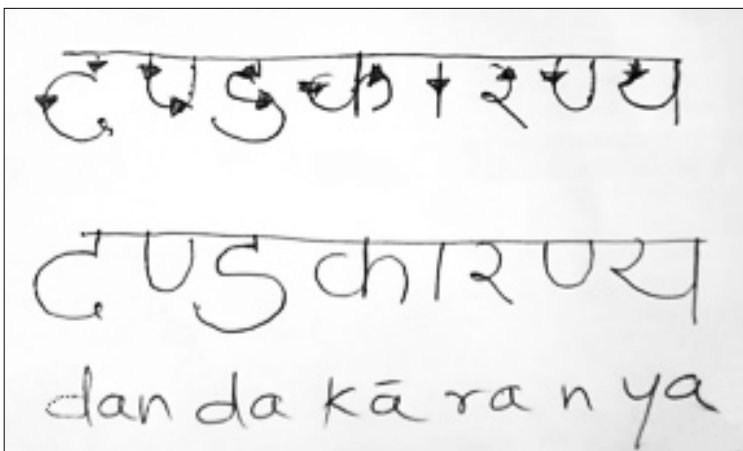 दण्डकारण्य
दण्डकारण्य
dan da kā ra n ya